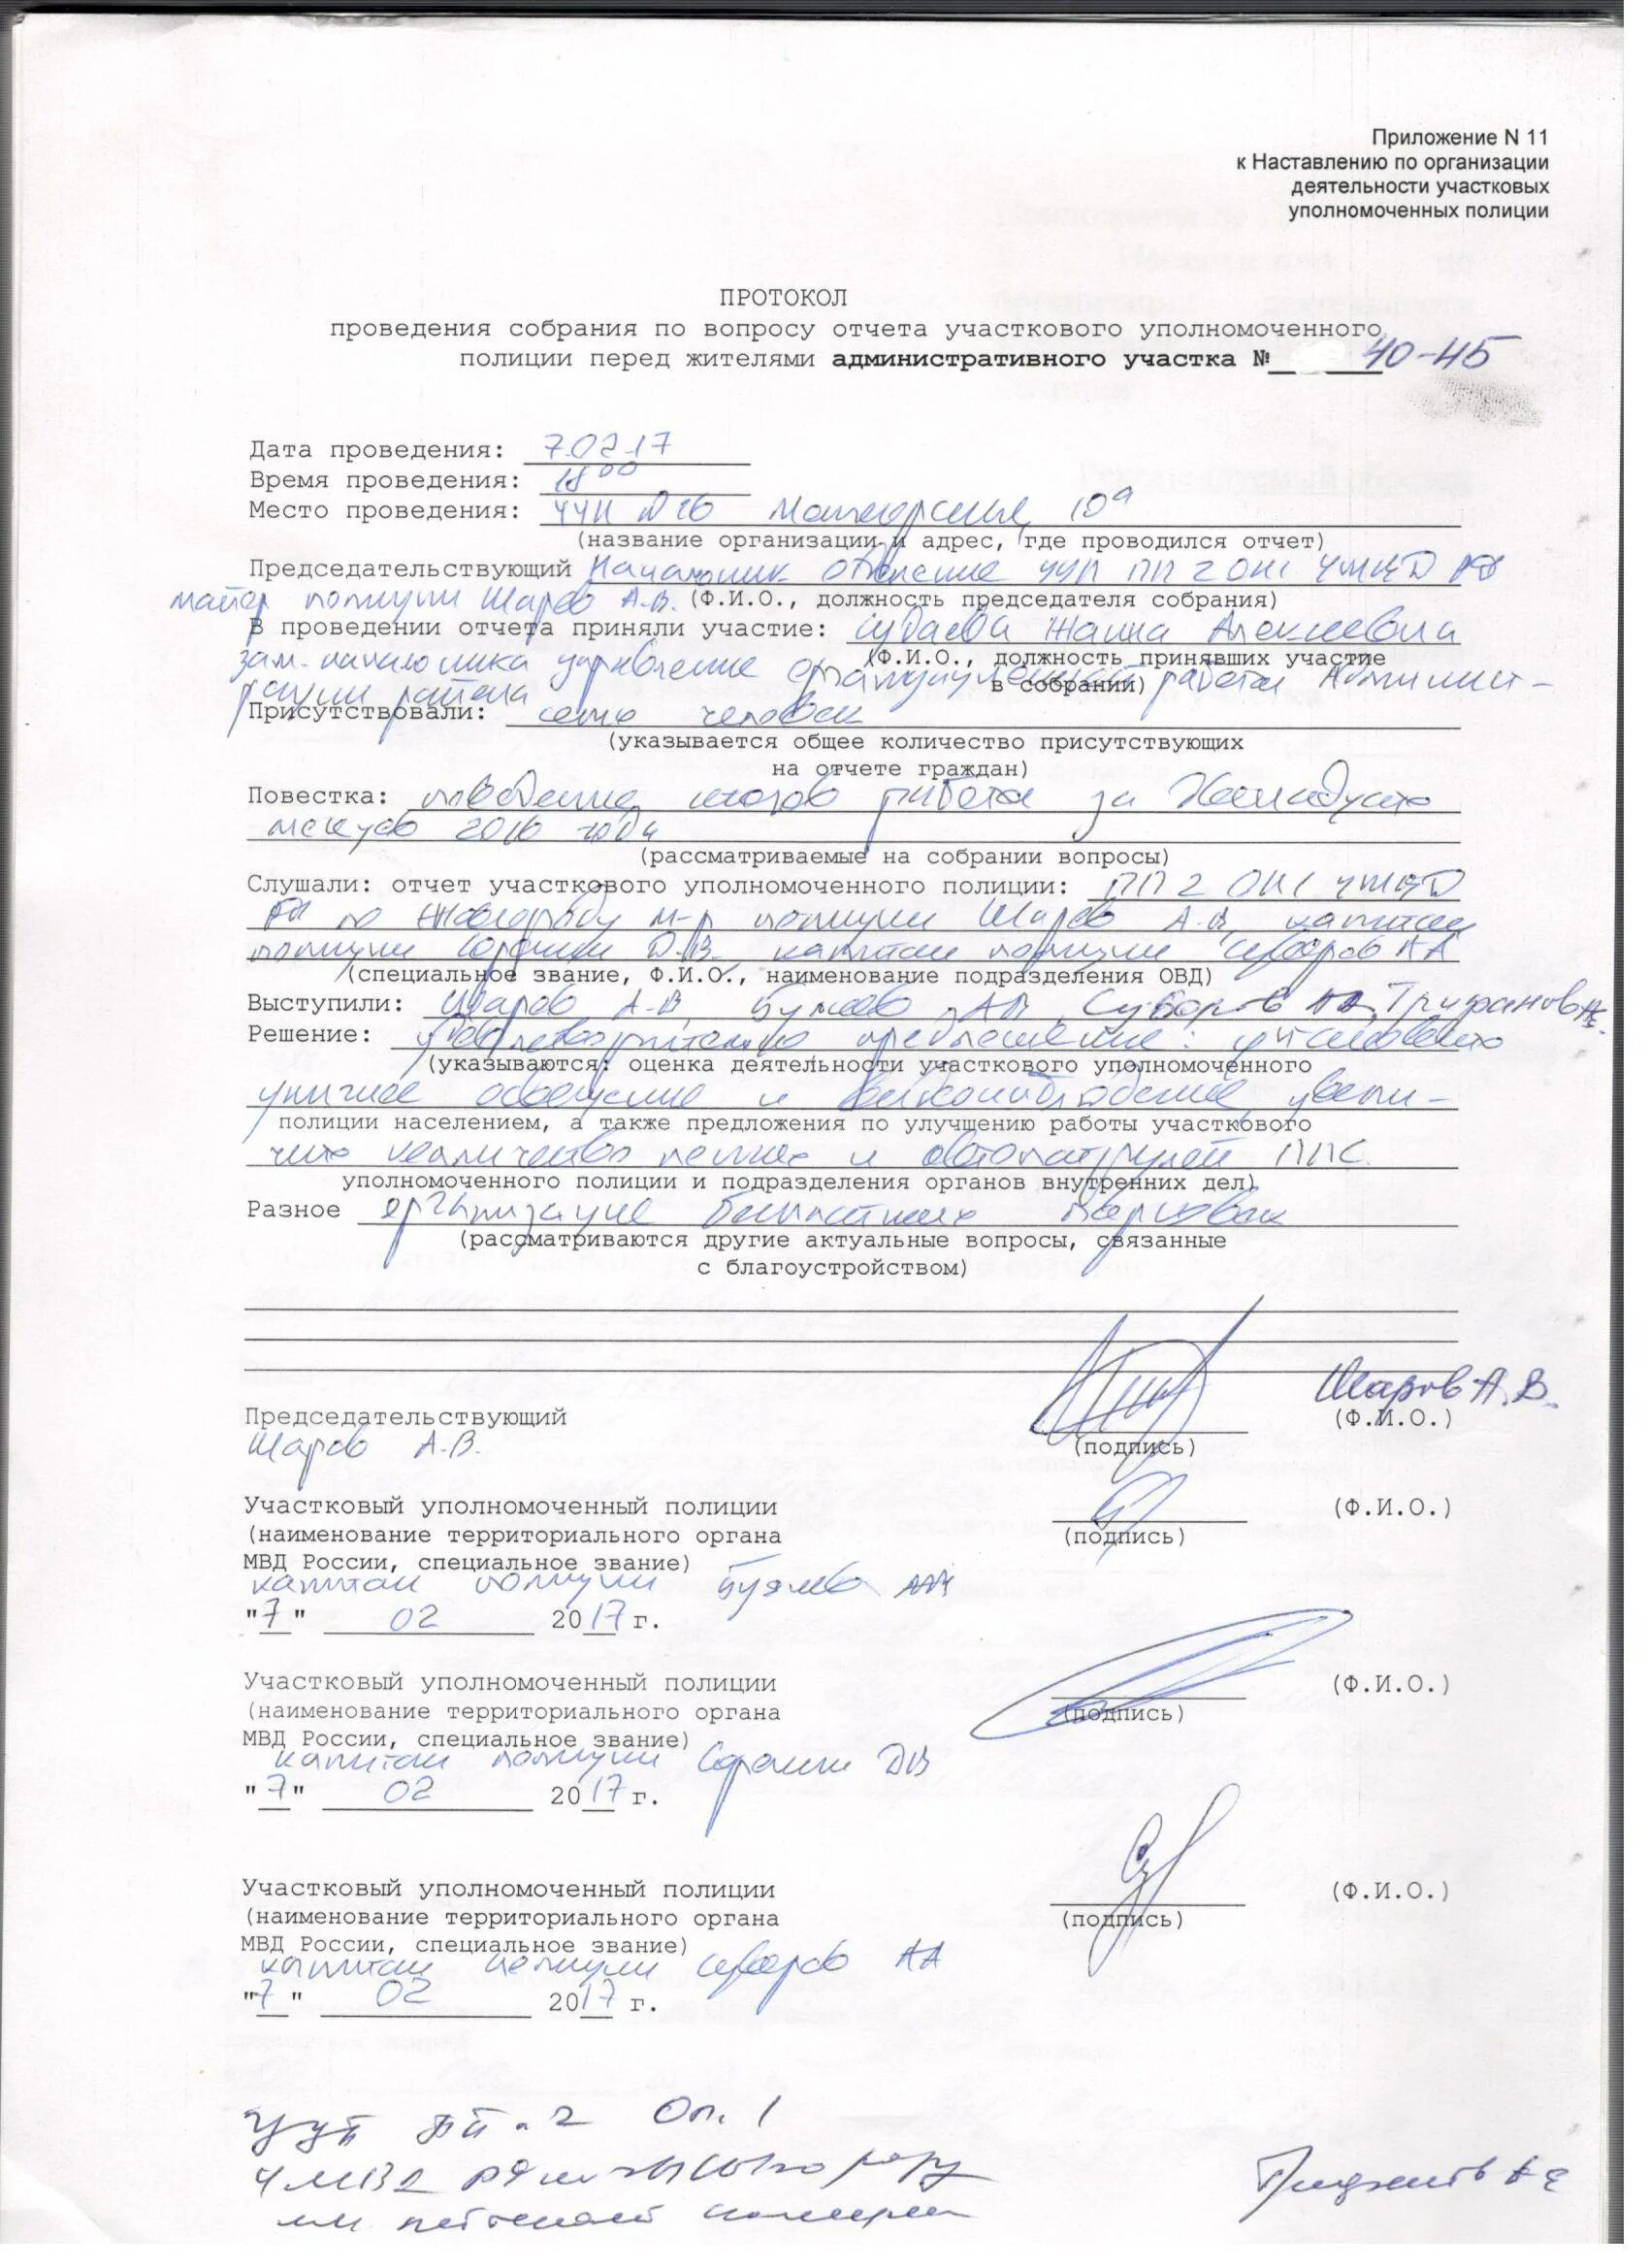 Приложение N 11
к Наставлению по организации
деятельности участковых
уполномоченных полиции
ПРОТОКОЛ
проведения собрания по вопросу отчета участкового уполномоченного
полиции перед жителями административного участка № 40-45
Дата проведения: 7.02.17
Время проведения: 18 00
Место проведения: УУП №16 10а
(название организации и адрес, где проводился отчет)
Председательствующий Начальник отделение УУП ПП 2 ОП1 УМВД
майор полиции Шаров А.В. (Ф.И.О., должность председателя собрания)
В проведении отчета приняли участие: Жанна Алексеевна
(Ф.И.О., должность принявших участие
зам. начальника управление организационной работы Админист-
в собрании)
рации района
Присутствовали: семь человек
(указывается общее количество присутствующих
на отчете граждан)
Повестка: подведение итогов работы за
месяцев 2016 года
(рассматриваемые на собрании вопросы)
Слушали: отчет участкового уполномоченного полиции: ПП 2 ОП1 УМВД
по м-р полиции Шаров А.В. капитан
полиции Сорокин Д.В. капитан полиции Суворов АА
(специальное звание, Ф.И.О., наименование подразделения ОВД)
Выступили: Шаров А.В, Суворов АА, Трифанов
Решение: удовлетворительно предложение: установить
(указываются: оценка деятельности участкового уполномоченного
уличное освещение и видеонаблюдение, увели-
полиции населением, а также предложения по улучшению работы участкового
чить количество пеших и автопатрулей ППС.
уполномоченного полиции и подразделения органов внутренних дел)
Разное организация бесплатных парковок
(рассматриваются другие актуальные вопросы, связанные
с благоустройством)
Шаров А.В.
Председательствующий (Ф.И.О.)
Шаров А.В. (подпись)
Участковый уполномоченный полиции (Ф.И.О.)
(наименование территориального органа (подпись)
МВД России, специальное звание)
капитан полиции
"7" 02 2017 г.
Участковый уполномоченный полиции (Ф.И.О.)
(наименование территориального органа (подпись)
МВД России, специальное звание)
капитан полиции Сорокин ДВ
"7" 02 2017 г.
Участковый уполномоченный полиции (Ф.И.О.)
(наименование территориального органа (подпись)
МВД России, специальное звание)
капитан полиции Суворов АА
"7" 02 2017 г.
УУП ПП-2 Оп.1
УМВД